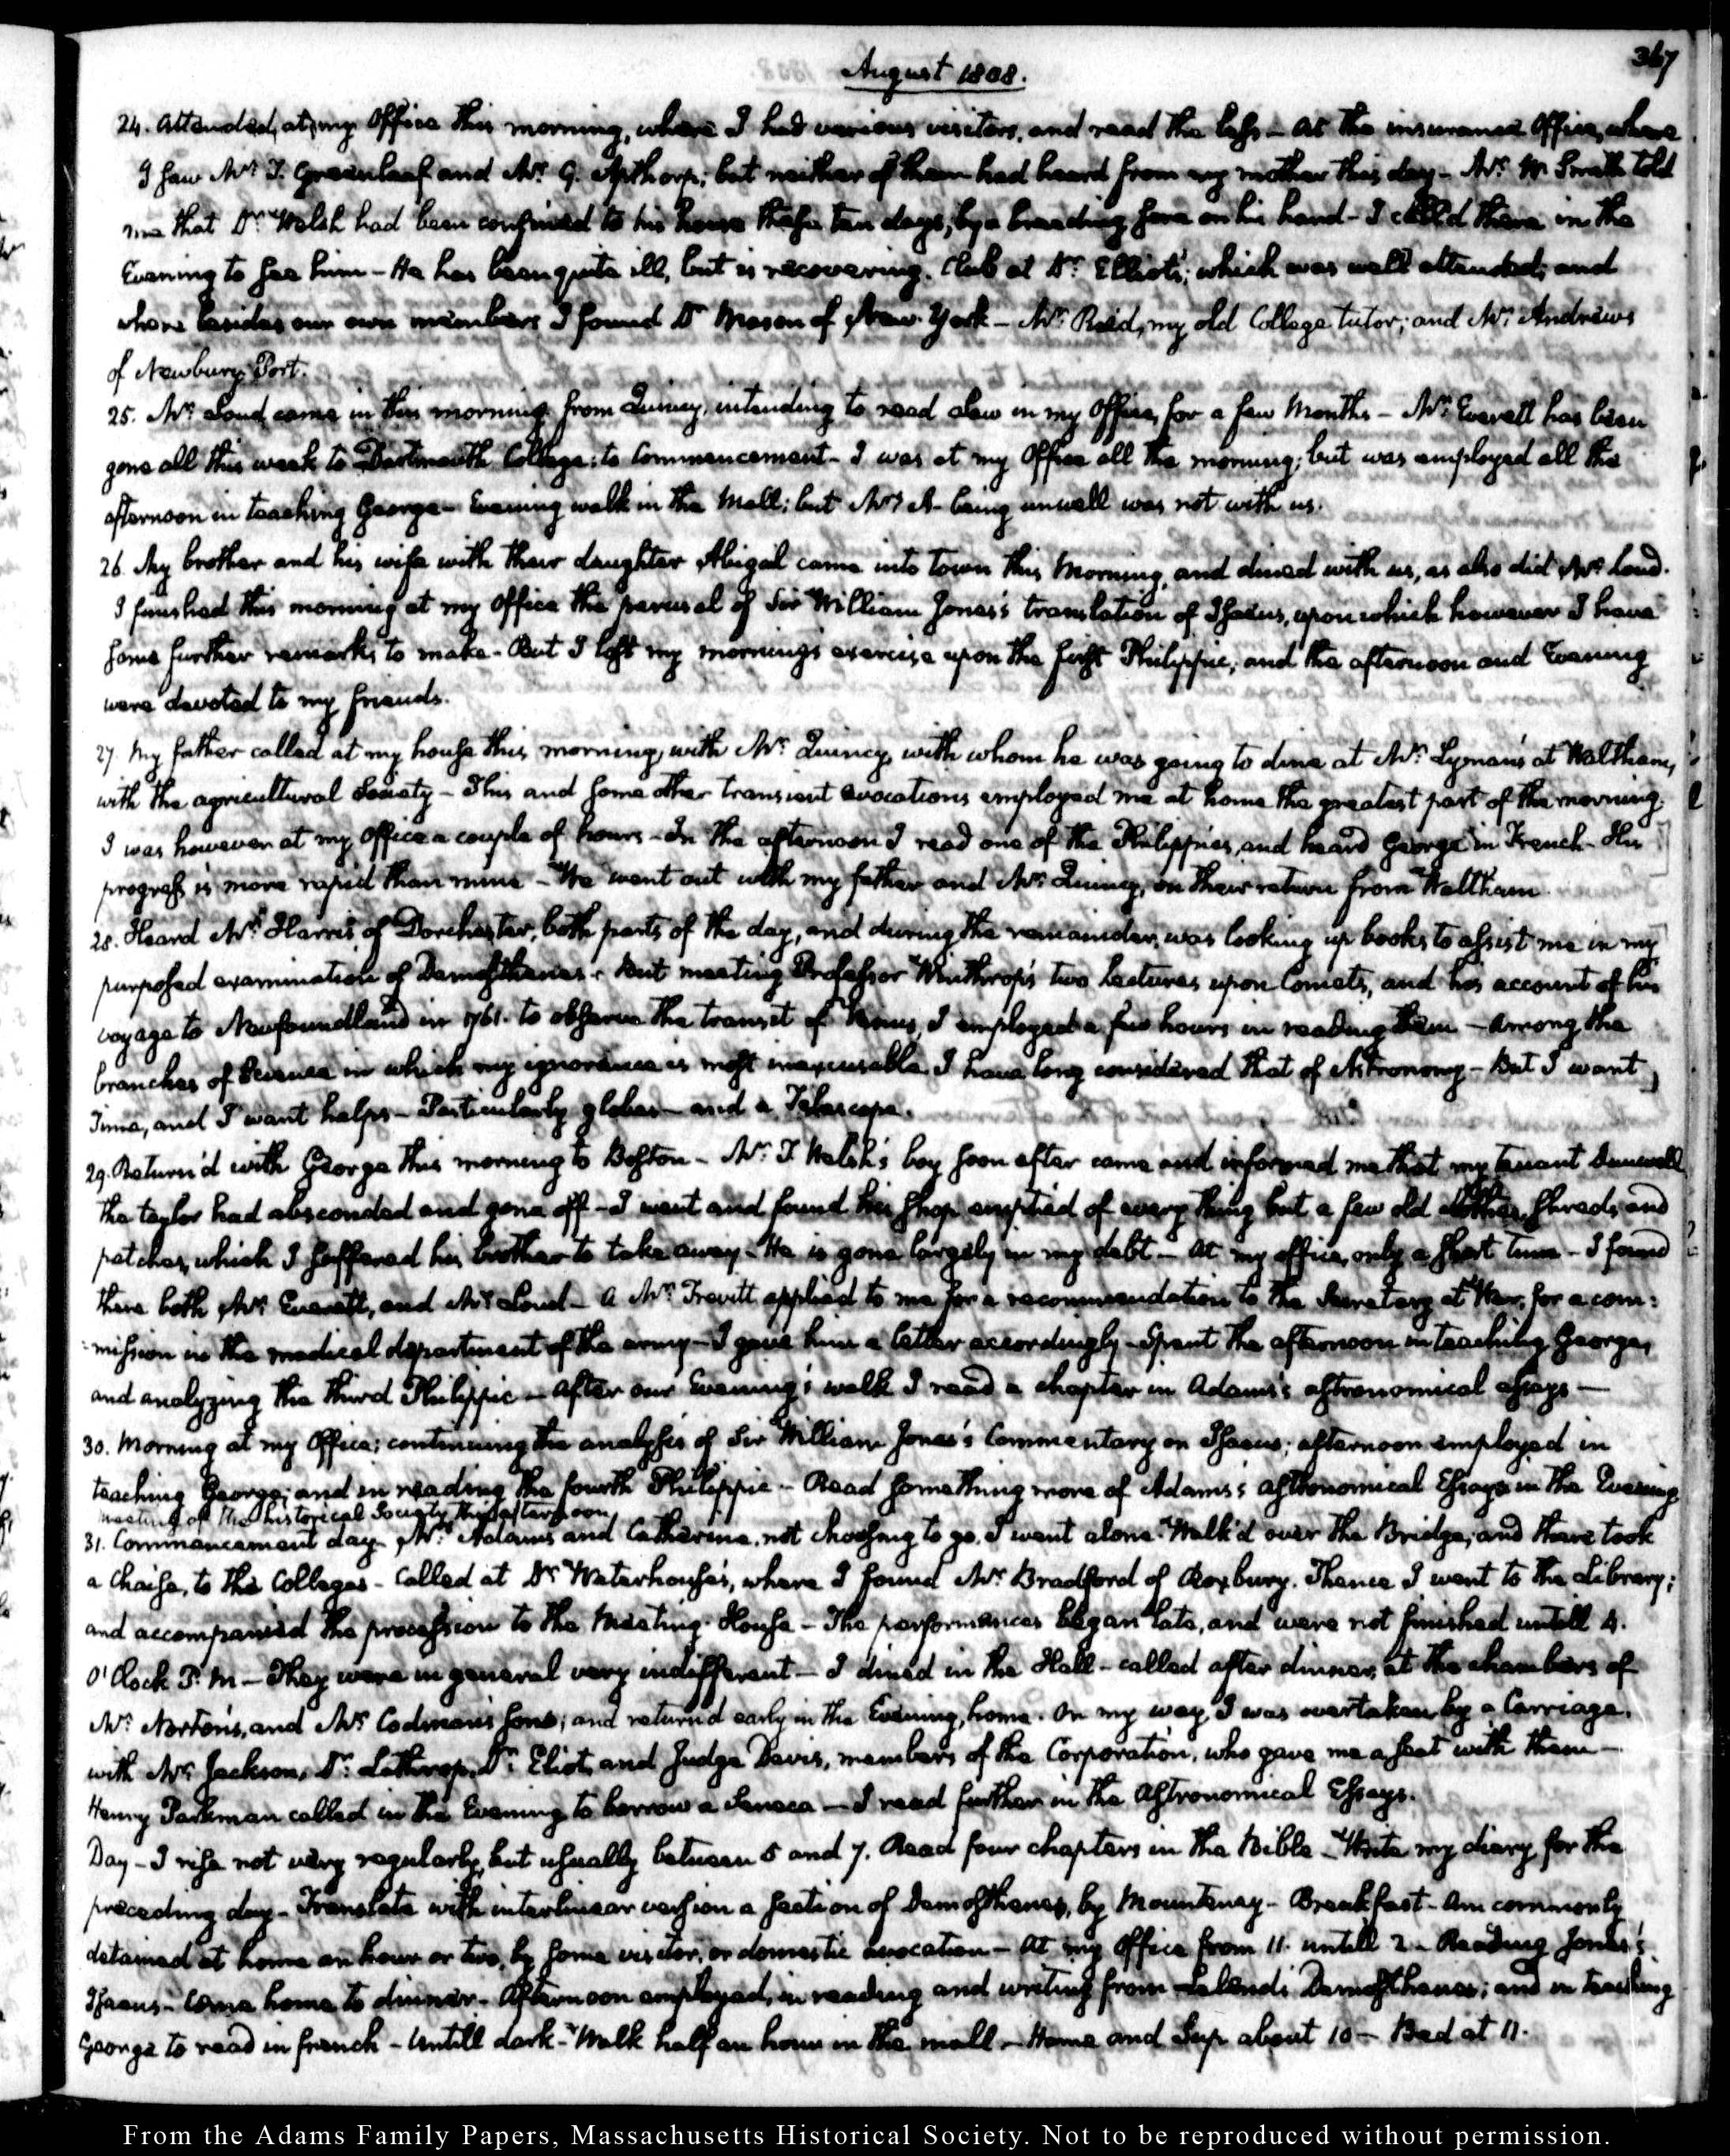 367
August 1808.
24. Attended at my Office this morning, where I had various visitors, and read the less — At the insurance Office, where
I saw Mr. J. Greenleaf and Mr. G. Apthorp; but neither of them had heard from my mother this day — Mr. W. Smith told
me that Dr. Welsh had been confined to his house these ten days, by a bleeding sore on his hand — I call'd there in the
Evening to see him — He has been quite ill, but is recovering. Club at Dr. Elliot's; which was well attended; and
where besides our own members I found Dr Mason of New-York — Mr. Reid, my old College tutor; and Mr. Andrews
of Newbury-Port.
25. Mr. Loud came in this morning from Quincy, intending to read Law in my Office, for a few Months — Mr. Everett has been
gone all this week to Dartmouth College: to Commencement — I was at my Office all the morning; but was employed all the
afternoon in teaching George — Evening walk in the Mall; but Mrs A— being unwell was not with us.
26. My brother and his wife with their daughter Abigail came into town this Morning, and dined with us, as also did Mr. Loud.
I finished this morning at my office the perusal of Sir William Jones's translation of Isaeus, upon which however I have
some further remarks to make — But I lost my morning's exercise upon the first Philippic; and the afternoon and Evening
were devoted to my friends.
27. My father called at my house this morning, with Mr. Quincy, with whom he was going to dine at Mr. Lyman's at Waltham,
with the agricultural Society — This and some other transient avocations employed me at home the greatest part of the morning.
I was however at my office a couple of hours — In the afternoon I read one of the Philippics, and heard George in French — His
progress is more rapid than mine — We went out with my father and Mr. Quincy, on their return from Waltham.
28. Heard Mr. Harris of Dorchester, both parts of the day, and during the remainder, was looking up books to assist me in my
purposed examination of Demosthenes — But meeting Professor Winthrop's two Lectures upon Comets, and his account of his
voyage to Newfoundland in 1761. to observe the transit of Venus, I employed a few hours in reading them — Among the
branches of Science in which my ignorance is most inexcusable, I have long considered that of Astronomy — But I want
Time, and I want helps — Particularly globes — and a Telescope.
29. Return'd with George this morning to Boston — Mr. T. Welsh's boy soon after came and informed me that my tenant
the taylor had absconded and gone off — I went and found his shop emptied of every thing but a few old clothes, shreds, and
patches, which I suffered his brother to take away — He is gone largely in my debt — At my office, only a short time — I found
there both Mr. Everett, and Mr. Loud — A Mr. Trevitt applied to me for a recommendation to the Secretary at War, for a com:
-mission in the medical department of the army — I gave him a letter accordingly — Spent the afternoon in teaching George,
and analyzing the third Philippic — After our Evening's walk I read a chapter in Adams's astronomical essays —
30. Morning at my Office; continuing the analysis of Sir William Jones's Commentary on Isaeus; afternoon employed in
teaching George; and in reading the fourth Philippic — Read something more of Adams's astronomical Essays in the Evening
meeting of the historical Society this afternoon
31. Commencement day. Mrs. Adams and Catherine, not choosing to go, I went alone. Walk'd over the Bridge; and there took
a Chaise, to the Colleges — Called at Dr. Waterhouse's, where I found Mr. Bradford of Roxbury. Thence I went to the Library;
and accompanied the procession to the Meeting-House — The performances began late, and were not finished untill 4.
O'Clock P.M — They were in general very indifferent — I dined in the Hall — called after dinner, at the chambers of
Mr. Norton's, and Mr. Codman's sons; and return'd early in the Evening, home. On my way, I was overtaken by a Carriage,
with Mr. Jackson, Dr. Lathrop, Dr. Eliot, and Judge Davis, members of the Corporation, who gave me a seat with them —
Henry Parkman called in the Evening to borrow a Seneca — I read further in the Astronomical Essays.
Day — I rise not very regularly, but usually between 5 and 7. Read four chapters in the Bible — Write my diary for the
preceding day — Translate with interlinear version a section of Demosthenes, by Mountenay — Breakfast — Am commonly
detained at home an hour or two, by some visitor, or domestic avocation — At my Office from 11. untill 2 — Reading Jones's
Isaeus — Come home to dinner — Afternoon employed, in reading and writing from Leland's Demosthenes; and in teaching
George to read in french — Untill dark — Walk half an hour in the mall — Home and Sup about 10 — Bed at 11.
From the Adams Family Papers, Massachusetts Historical Society. Not to be reproduced without permission.